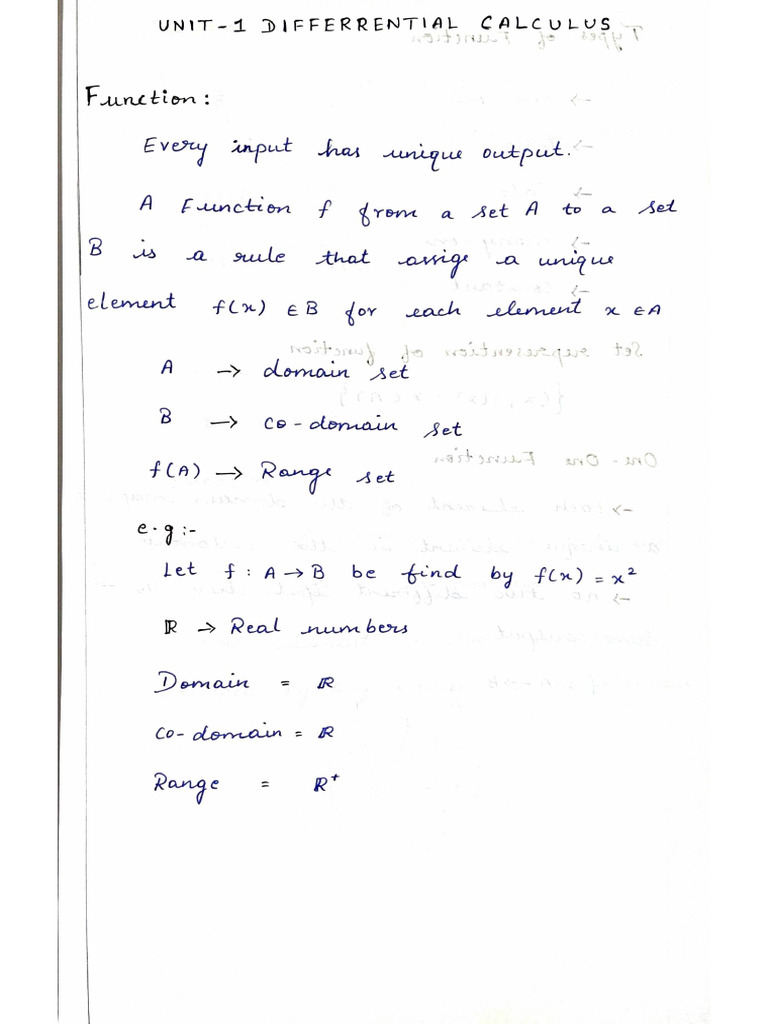 UNIT-1 DIFFERRENTIAL CALCULUS
Function:
Every input has unique output.
A Function f from a set A to a set
B is a rule that assige a unique
element f(x) ∈ B for each element x ∈ A
A → domain set
B → co-domain set
f(A) → Range set
e.g:-
Let f : A → B be find by f(x) = x²
ℝ → Real numbers
Domain = ℝ
co-domain = ℝ
Range = ℝ⁺